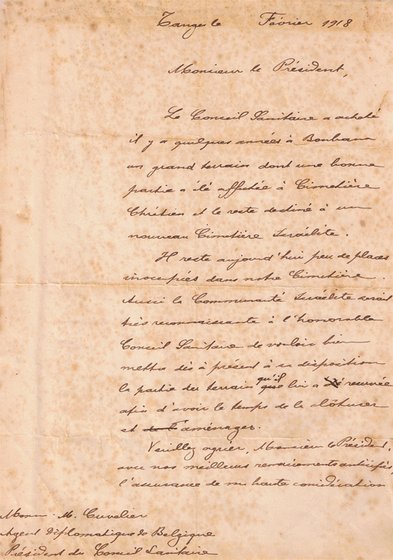 Tanger le Février 1918
Monsieur le Président,
Le Conseil Sanitaire a acheté
il y a quelques années à Boubana
un grand terrain dont une bonne
partie a été affectée à Cimetière
Chrétien et le reste destiné à un
nouveau Cimetière Israélite.
Il reste aujourd'hui peu de places
inoccupées dans notre Cimetière.
Aussi la Communauté Israélite serait
très reconnaissante à l'honorable
Conseil Sanitaire de vouloir bien
mettre dès à présent à sa disposition
la partie du terrain qu'il lui a réservée
afin d'avoir le temps de la clôturer
et aménager.
Veuillez agréer, Monsieur le Président,
avec nos meilleurs remerciements anticipés,
l'assurance de ma haute considération
M. Cuvelier
Agent diplomatique de Belgique
Président du Conseil Sanitaire